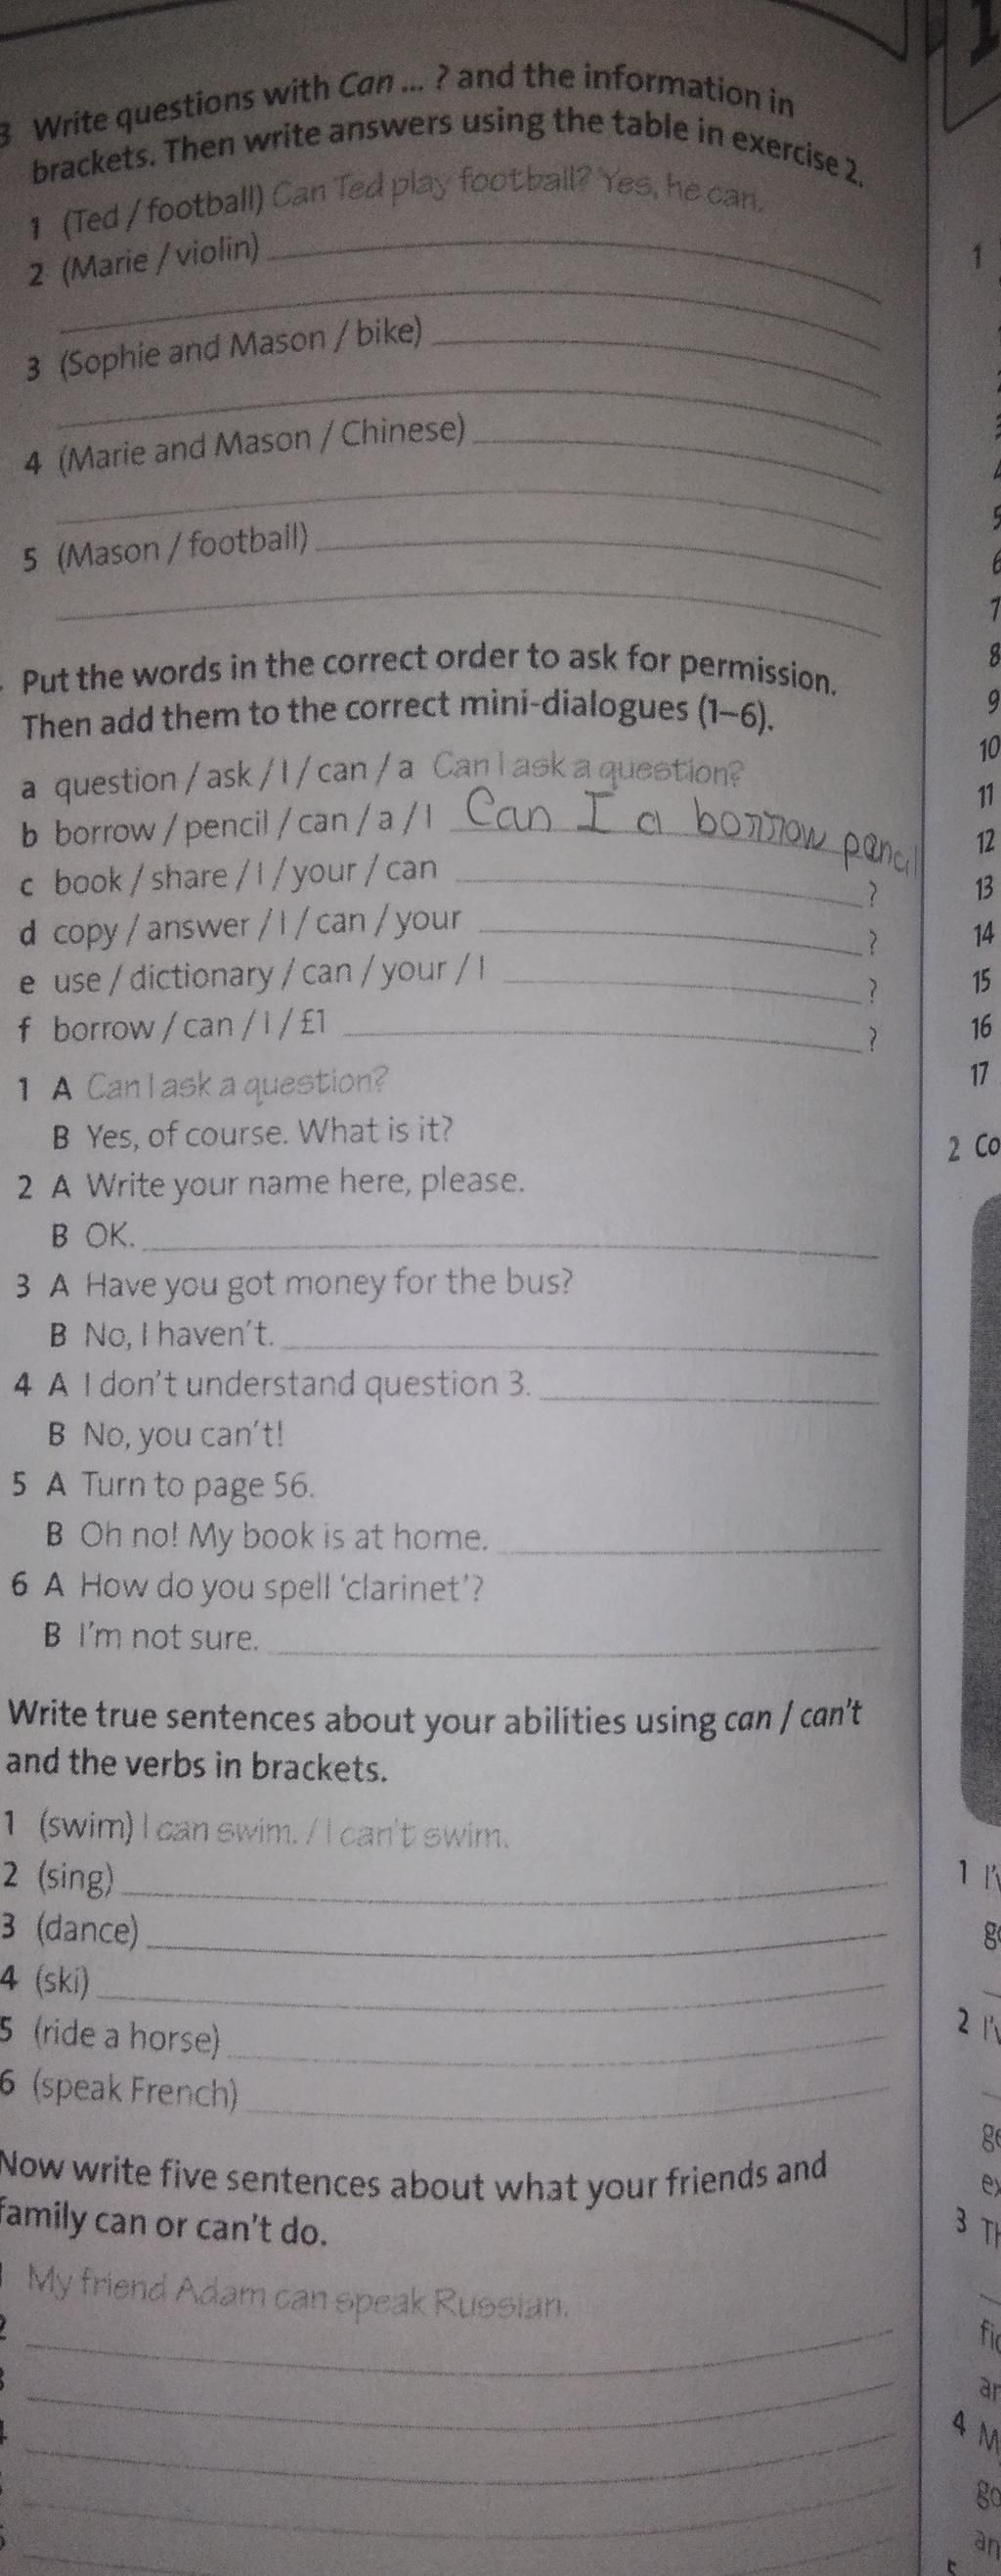 3 Write questions with Can ... ? and the information in
brackets. Then write answers using the table in exercise 2.
1 (Ted / football) Can Ted play football? Yes, he can.
2 (Marie / violin)
3 (Sophie and Mason / bike)
4 (Marie and Mason / Chinese)
5 (Mason / football)
Put the words in the correct order to ask for permission.
Then add them to the correct mini-dialogues (1–6).
a question / ask / I / can / a Can I ask a question?
b borrow / pencil / can / a / I Can I a borrow pencil
c book / share / I / your / can ?
d copy / answer / I / can / your ?
e use / dictionary / can / your / I ?
f borrow / can / I / £1 ?
1 A Can I ask a question?
B Yes, of course. What is it?
2 A Write your name here, please.
B OK.
3 A Have you got money for the bus?
B No, I haven't.
4 A I don't understand question 3.
B No, you can't!
5 A Turn to page 56.
B Oh no! My book is at home.
6 A How do you spell 'clarinet'?
B I'm not sure.
Write true sentences about your abilities using can / can't
and the verbs in brackets.
1 (swim) I can swim. / I can't swim.
2 (sing)
3 (dance)
4 (ski)
5 (ride a horse)
6 (speak French)
Now write five sentences about what your friends and
family can or can't do.
My friend Adam can speak Russian.
2
1
5
6
7
8
9
10
11
12
13
14
15
16
17
2 Co
1 I'v
2 I'v
3 Th
4 M